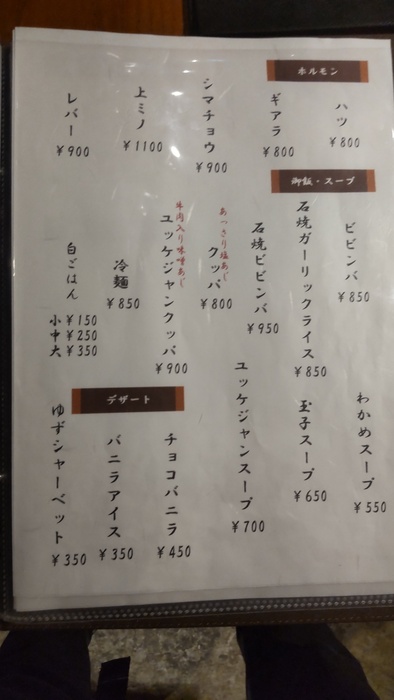 ホルモン
ハツ
¥800
ギアラ
¥800
シマチョウ
¥900
上ミノ
¥1100
レバー
¥900
御飯・スープ
ビビンバ
¥850
石焼ガーリックライス
¥850
石焼ビビンバ
¥950
あっさり塩あじ
クッパ
¥800
牛肉入り味噌あじ
ユッケジャンクッパ
¥900
冷麺
¥850
白ごはん
小¥150
中¥250
大¥350
わかめスープ
¥550
玉子スープ
¥650
ユッケジャンスープ
¥700
デザート
チョコバニラ
¥450
バニラアイス
¥350
ゆずシャーベット
¥350